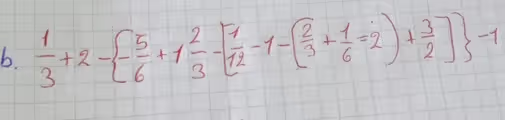 b. 1/3 + 2 - { -5/6 + 1 2/3 - [ 1/12 - 1 - ( 2/3 + 1/6 = 2 ) + 3/2 ] } - 1